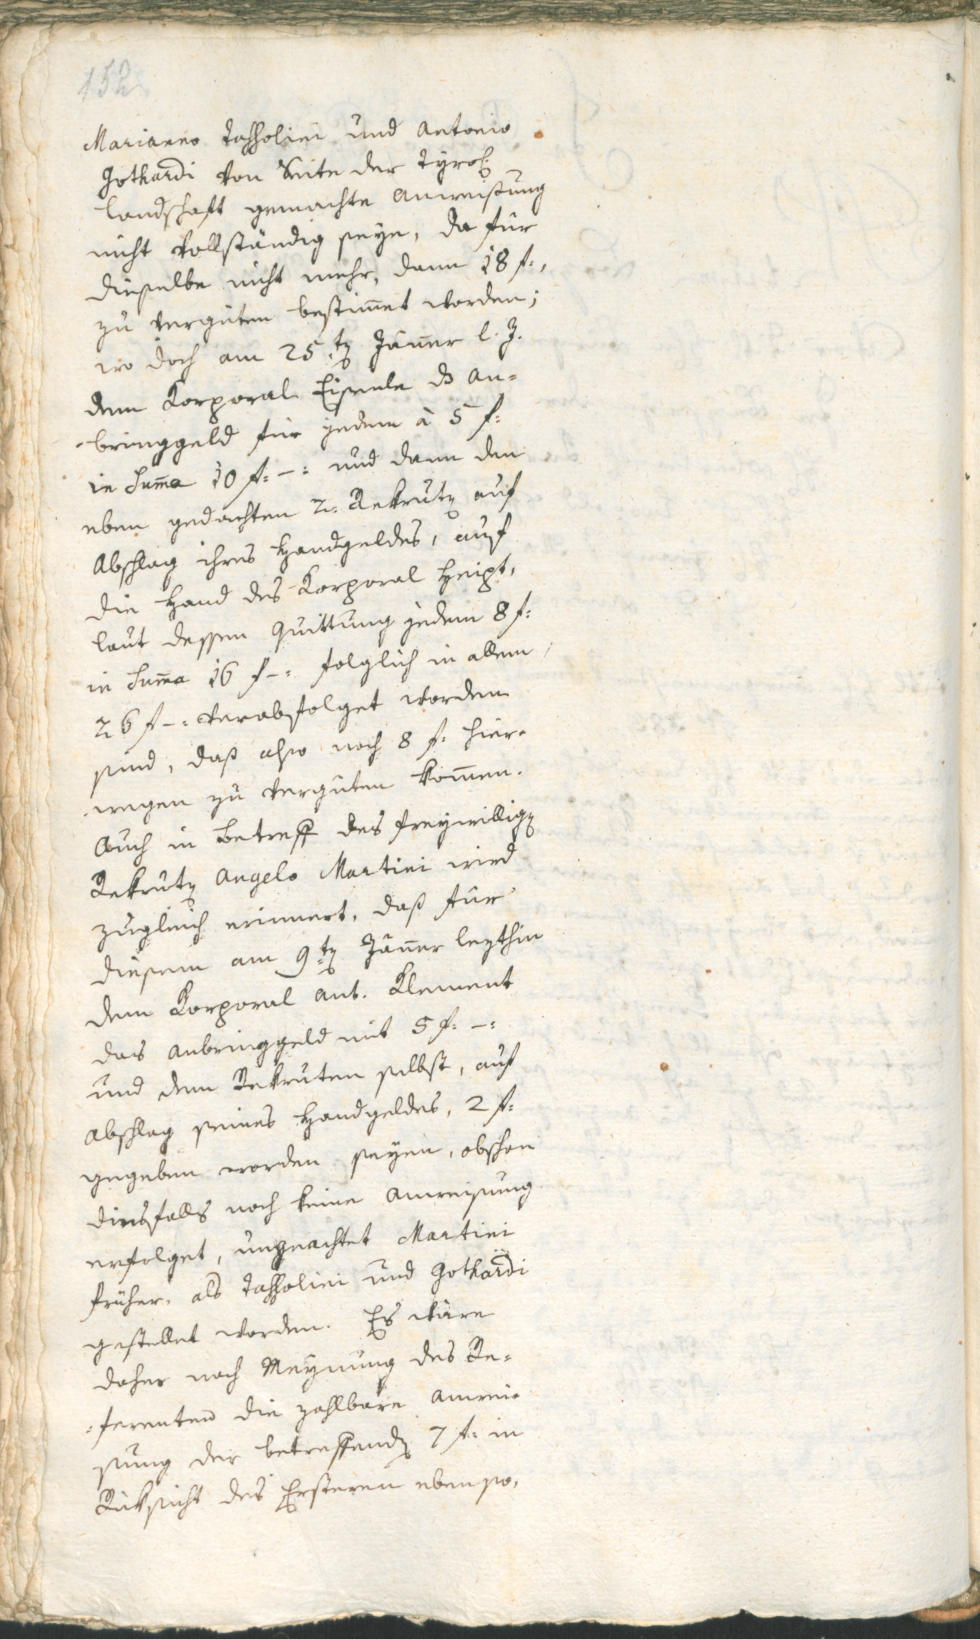 152
Marianno Tassolini und Antonio
Gothardi von Seite der Tyrol:
landschaft gemachte Anweisung
nicht vollständig seye, da für
dieselbe nicht mehr, dann 18 f:,
zu verguten bestim̄et worden;
wo doch am 25:ten Jäner l. J.
dem Korporal Eisenle das An=
=bringgeld für jedem à 5 f:
in Suma 10 f: –: und dann den
eben gedachten 2. Rekruten auf
Abschlag ihres Handgeldes, auf
die Hand des Korporal Heipt,
laut dessen Quittung jedem 8 f:
in Suma 16 f –: folglich in allem
26 f –: verabfolget worden
sind, daß also noch 8 f: hier=
=wegen zu verguten kom̄en.
Auch in Betreff des freywilligen
Rekruten Angelo Martini wird
zugleich erinnert, daß für
diesem am 9:ten Jäner lezthin
dem Korporal Ant. Klement
das Anbringgeld mit 5 f: –:
und dem Rekruten selbst, auf
Abschlag seines Handgeldes, 2 f:
gegeben worden seyen, obschon
diesfalls noch keine Anweisung
erfolget, ungeachtet Martini
früher, als Tassolini und Gothardi
gestellet worden. Es wäre
daher nach Meynung des Re=
=ferenten die zahlbare Anwei=
sung der betreffenden 7 f: in
Rüksicht des Ersteren ebenso,